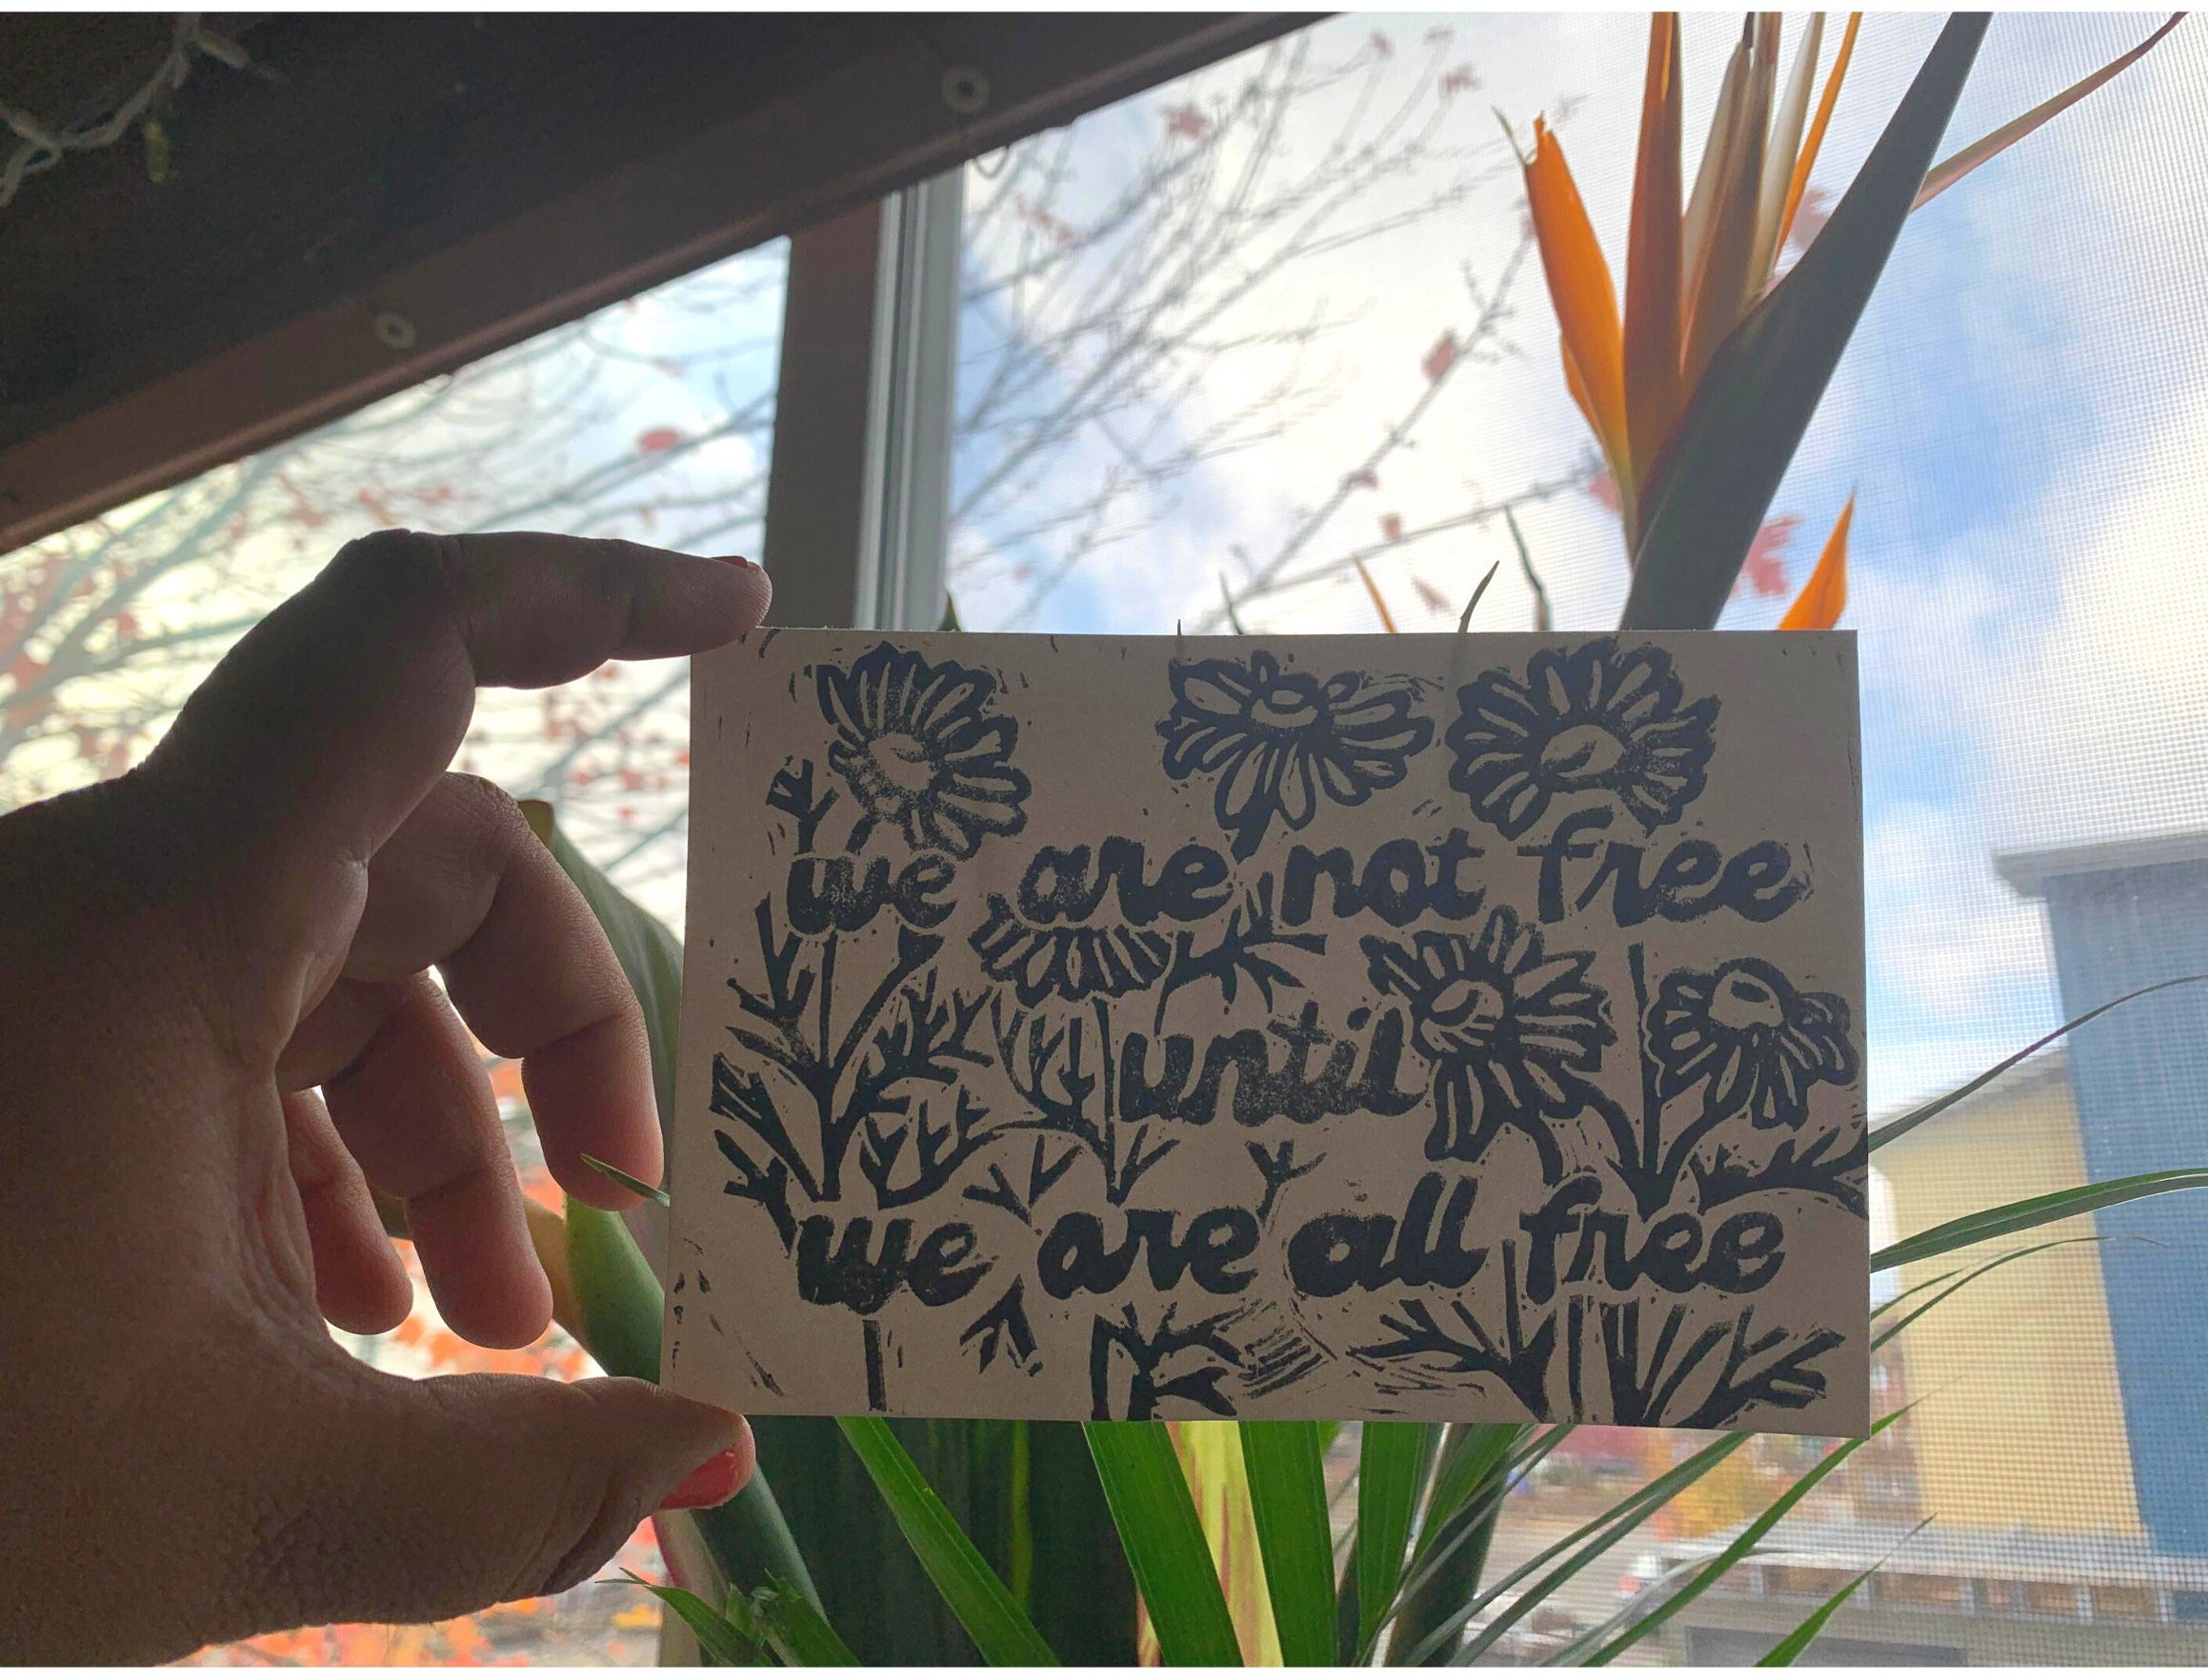 we are not free
until
we are all free